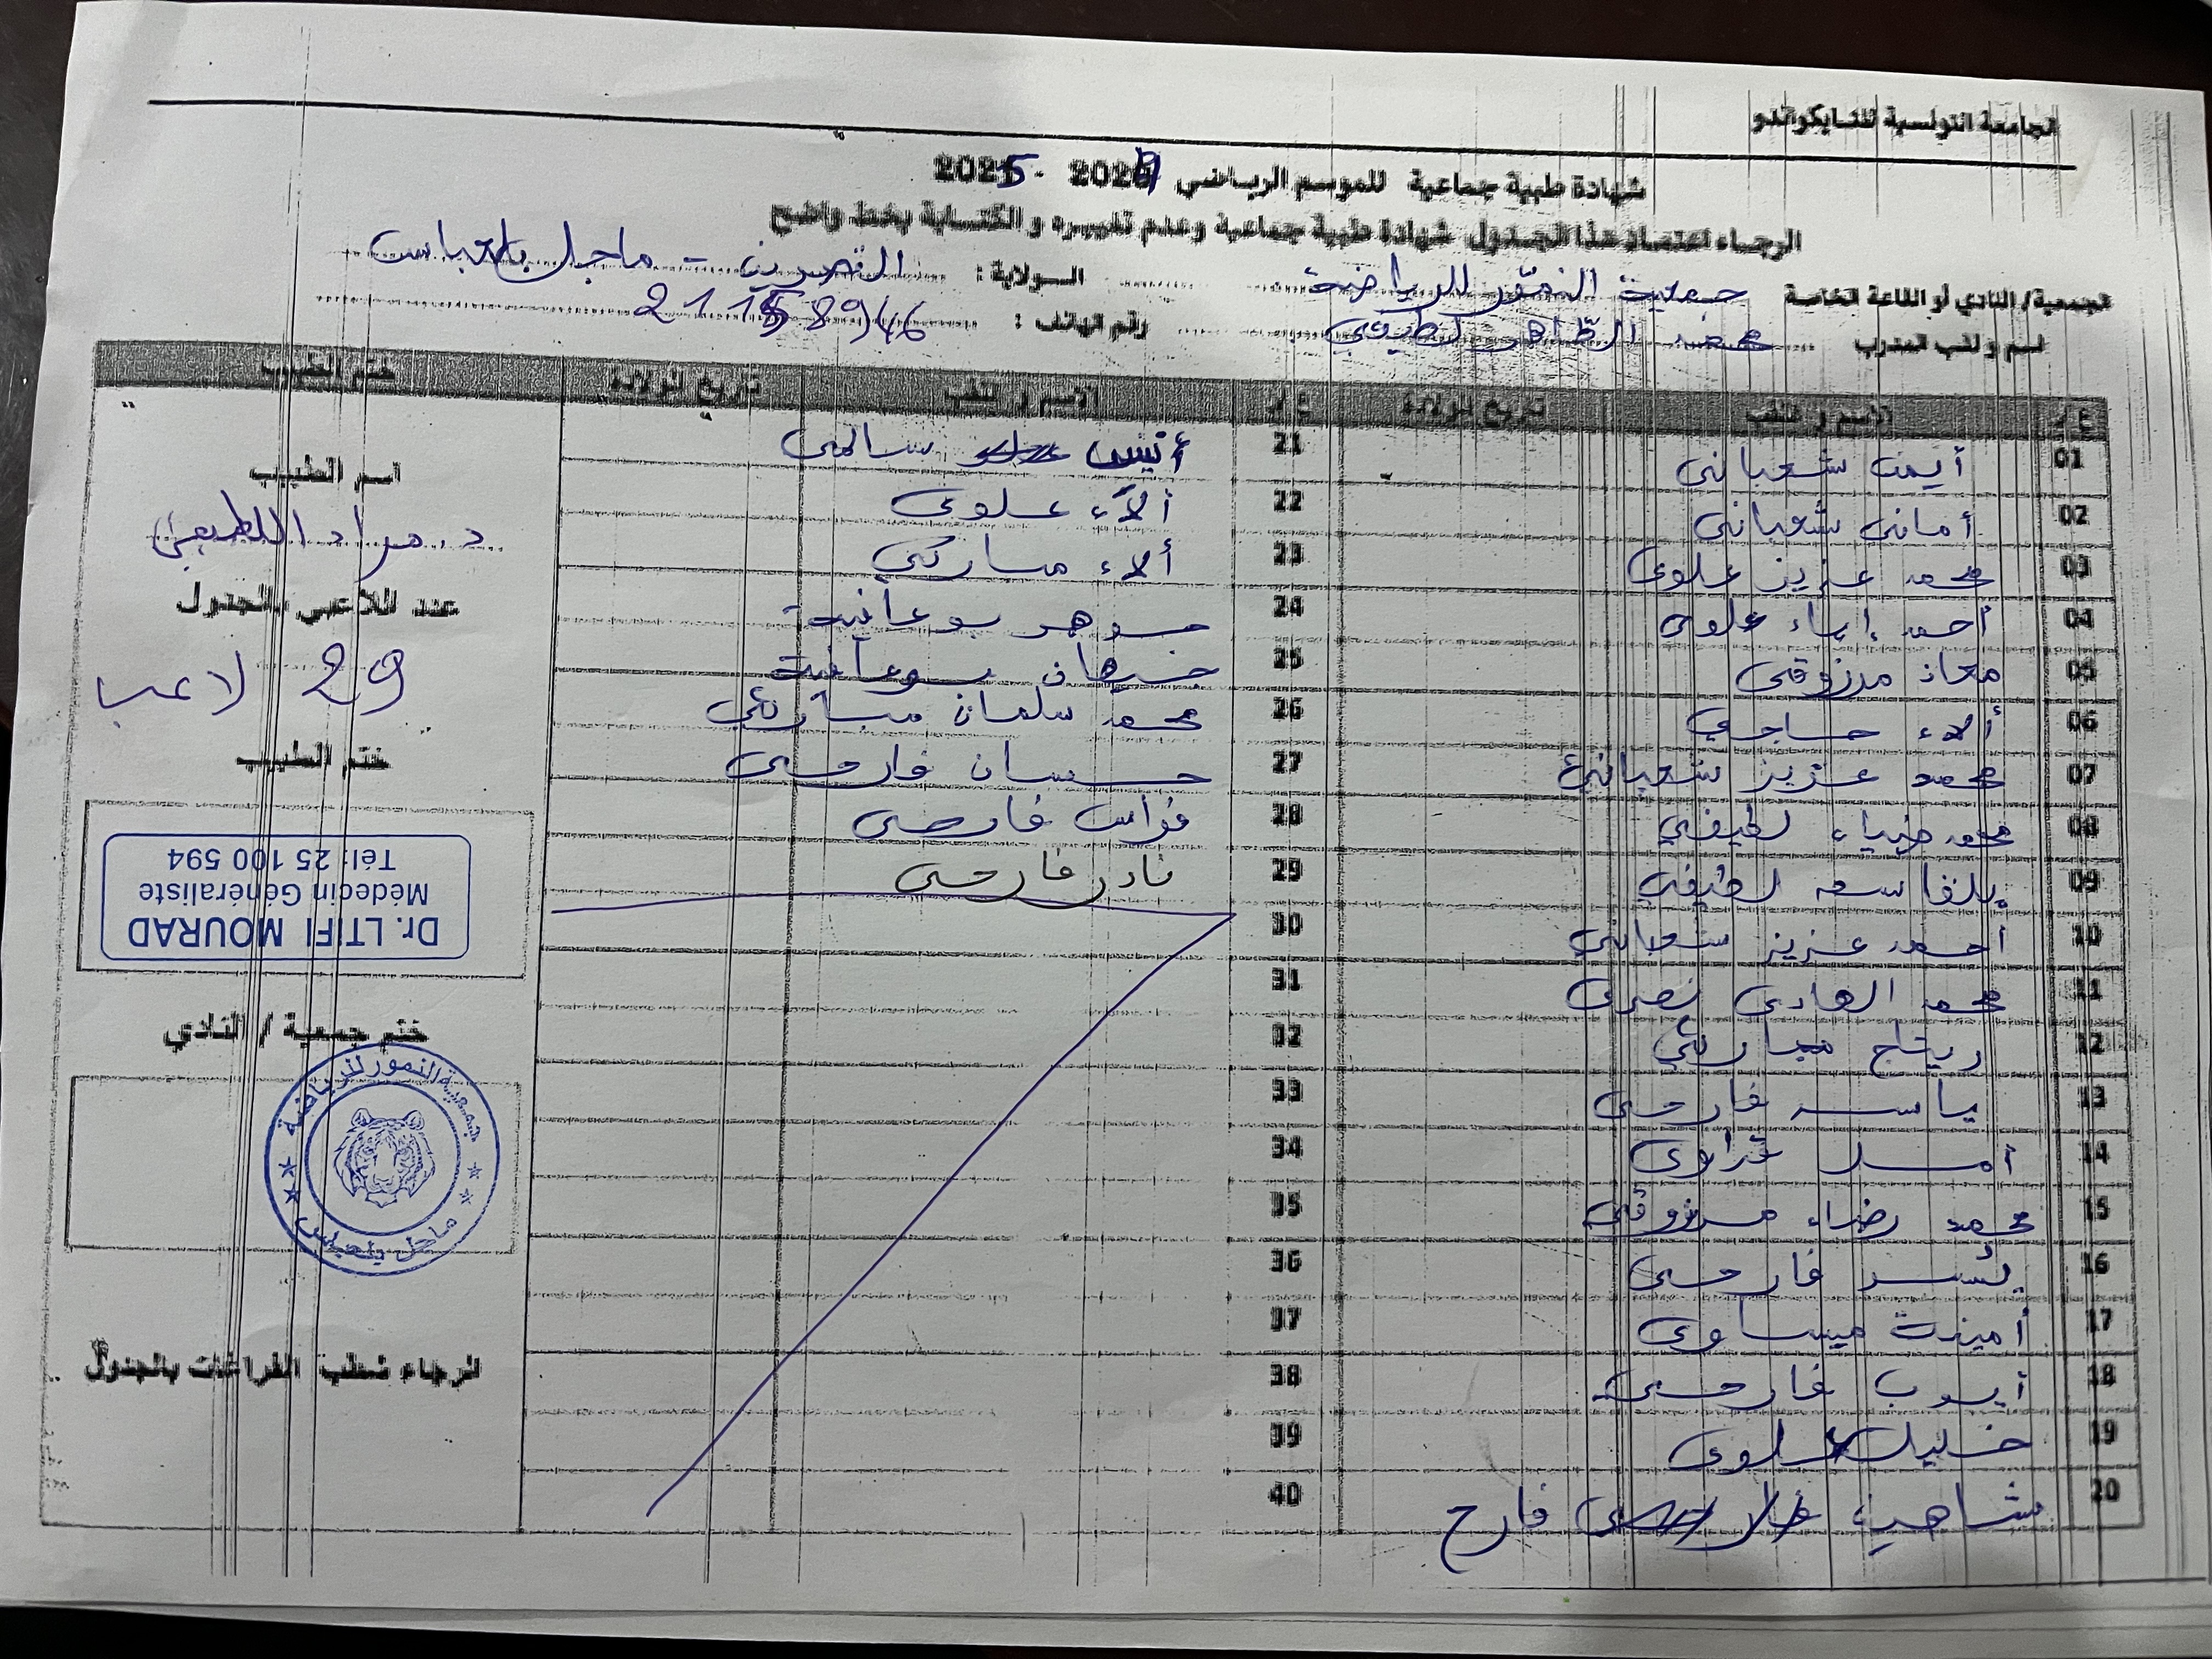 الجامعة التونسية للتايكواندو
شهادة طبية جماعية للموسم الرياضي 2024 - 2025
الرجاء اعتماد هذا الجدول شهادة طبية جماعية وعدم تغييره و الكتابة بخط واضح
الجمعية/ النادي أو القاعة الخاصة جمعية النمور للرياضة
الولاية : القصرين - ماجل بلعباس
اسم و لقب المدرب محمد الطاهر لطيفي
رقم الهاتف : 21158946
ع/ر الاسم و اللقب تاريخ الولادة ع/ر الاسم و اللقب تاريخ الولادة ختم الطبيب
01 أيمن شعباني
02 أماني شعباني
03 محمد عزيز علوي
04 أحمد إياء علوي
05 معاذ مرزوقي
06 ألاء حاجي
07 محمد عزيز شعباني
08 محمد ضياء لطيفي
09 بلقاسم لطيفي
10 أحمد عزيز شعباني
11 محمد الهادي نصري
12 ريتاج مباركي
13 فارحي
14 أمل
15 محمد رضاء مرزوقي
16 يسر فارحي
17 أمينة عيساوي
18 أيوب فارحي
19 خليل علوي
20 شاهين فارح
21 أنيس سالمي
22 ألاء علوي
23 ألاء مباركي
24 جوهر بوعانية
25 جيهان بوعانية
26 محمد سلمان مباركي
27 حسان فارحي
28 فراس فارحي
29 نادر فارحي
30
31
32
33
34
35
36
37
38
39
40
اسم الطبيب
د. مراد اللطيفي
عدد اللاعبين بالجدول
29 لاعب
ختم الطبيب
Dr. LTIFI MOURAD
Médecin Généraliste
Tél: 25 100 594
ختم جمعية / النادي
جمعية النمور للرياضة
ماجل بلعباس
الرجاء شطب الفراغات بالجدول